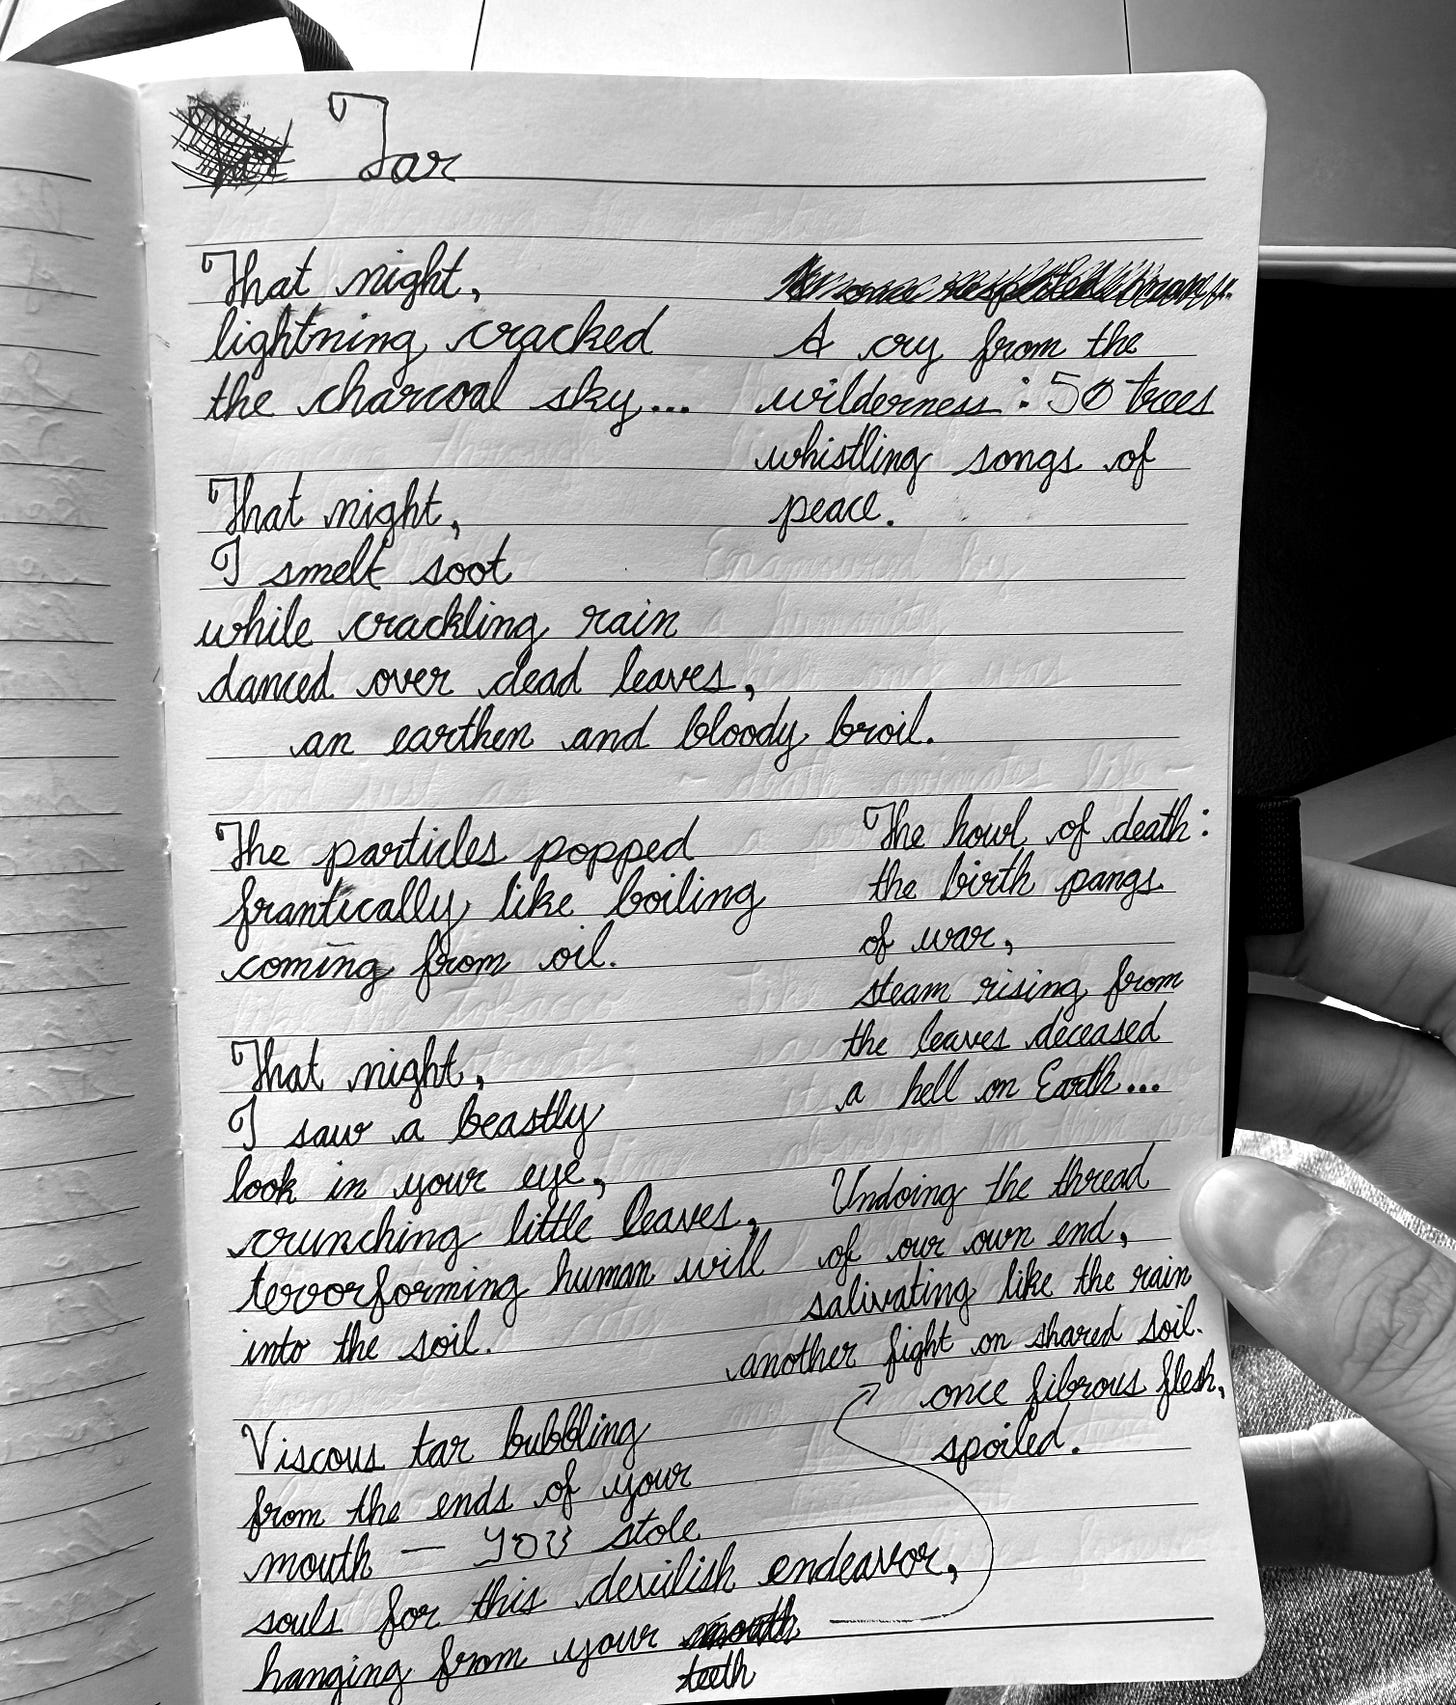 Tar
That night,
lightning cracked
the charcoal sky...
A cry from the
wilderness: 50 trees
whistling songs of
peace.
That night,
I smelt soot
while crackling rain
danced over dead leaves,
an earthen and bloody broil.
The particles popped
frantically like boiling
coming from oil.
The howl of death:
the birth pangs
of war,
steam rising from
the leaves deceased
a hell on Earth...
That night,
I saw a beastly
look in your eye,
crunching little leaves,
terrorforming human will
into the soil.
Undoing the thread
of our own end,
salivating like the rain
another fight on shared soil.
Viscous tar bubbling
from the ends of your
mouth — YOU stole
souls for this devilish endeavor,
hanging from your mouth
teeth
once fibrous flesh,
spoiled.